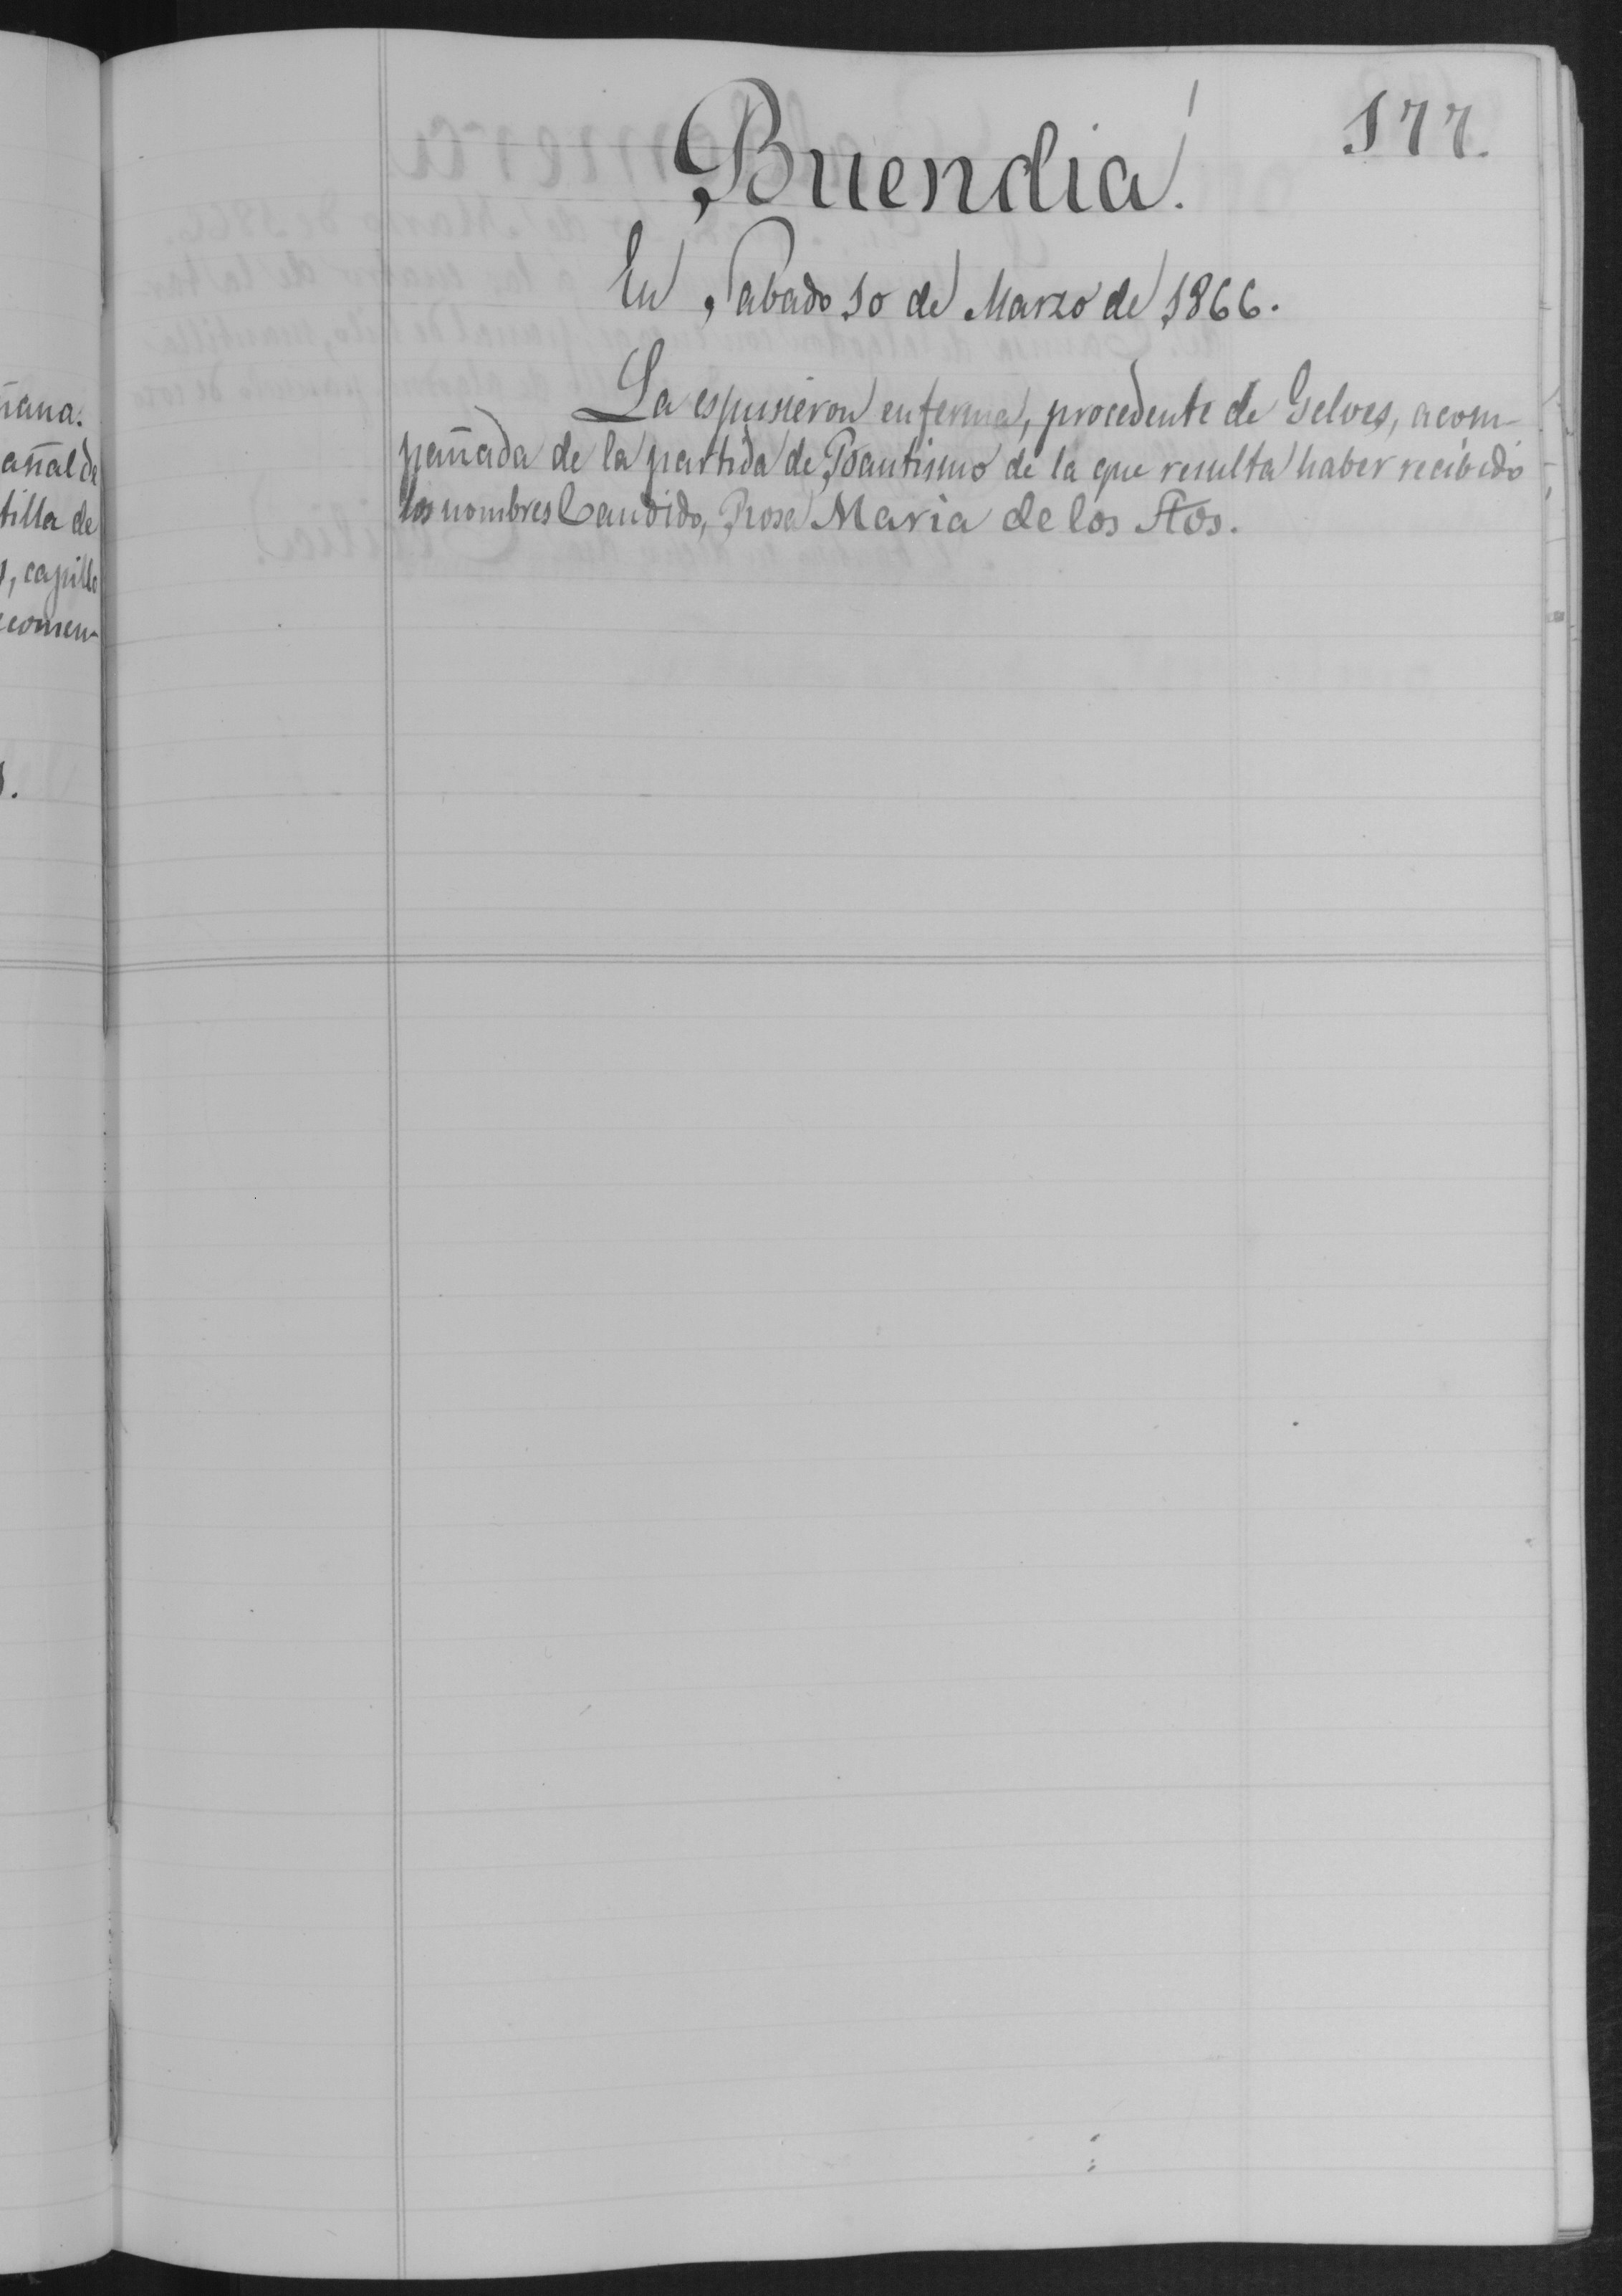 177.
Buendia.
En Sabado 10 de Marzo de 1866.
La espusieron enferma, procedente de Gelves, acom-
pañada de la partida de Bautismo de la que resulta haber recibido
los nombres Candido, Rosa Maria de los Stos.
ñana.
añal de
tilla de
, capillo
comen-